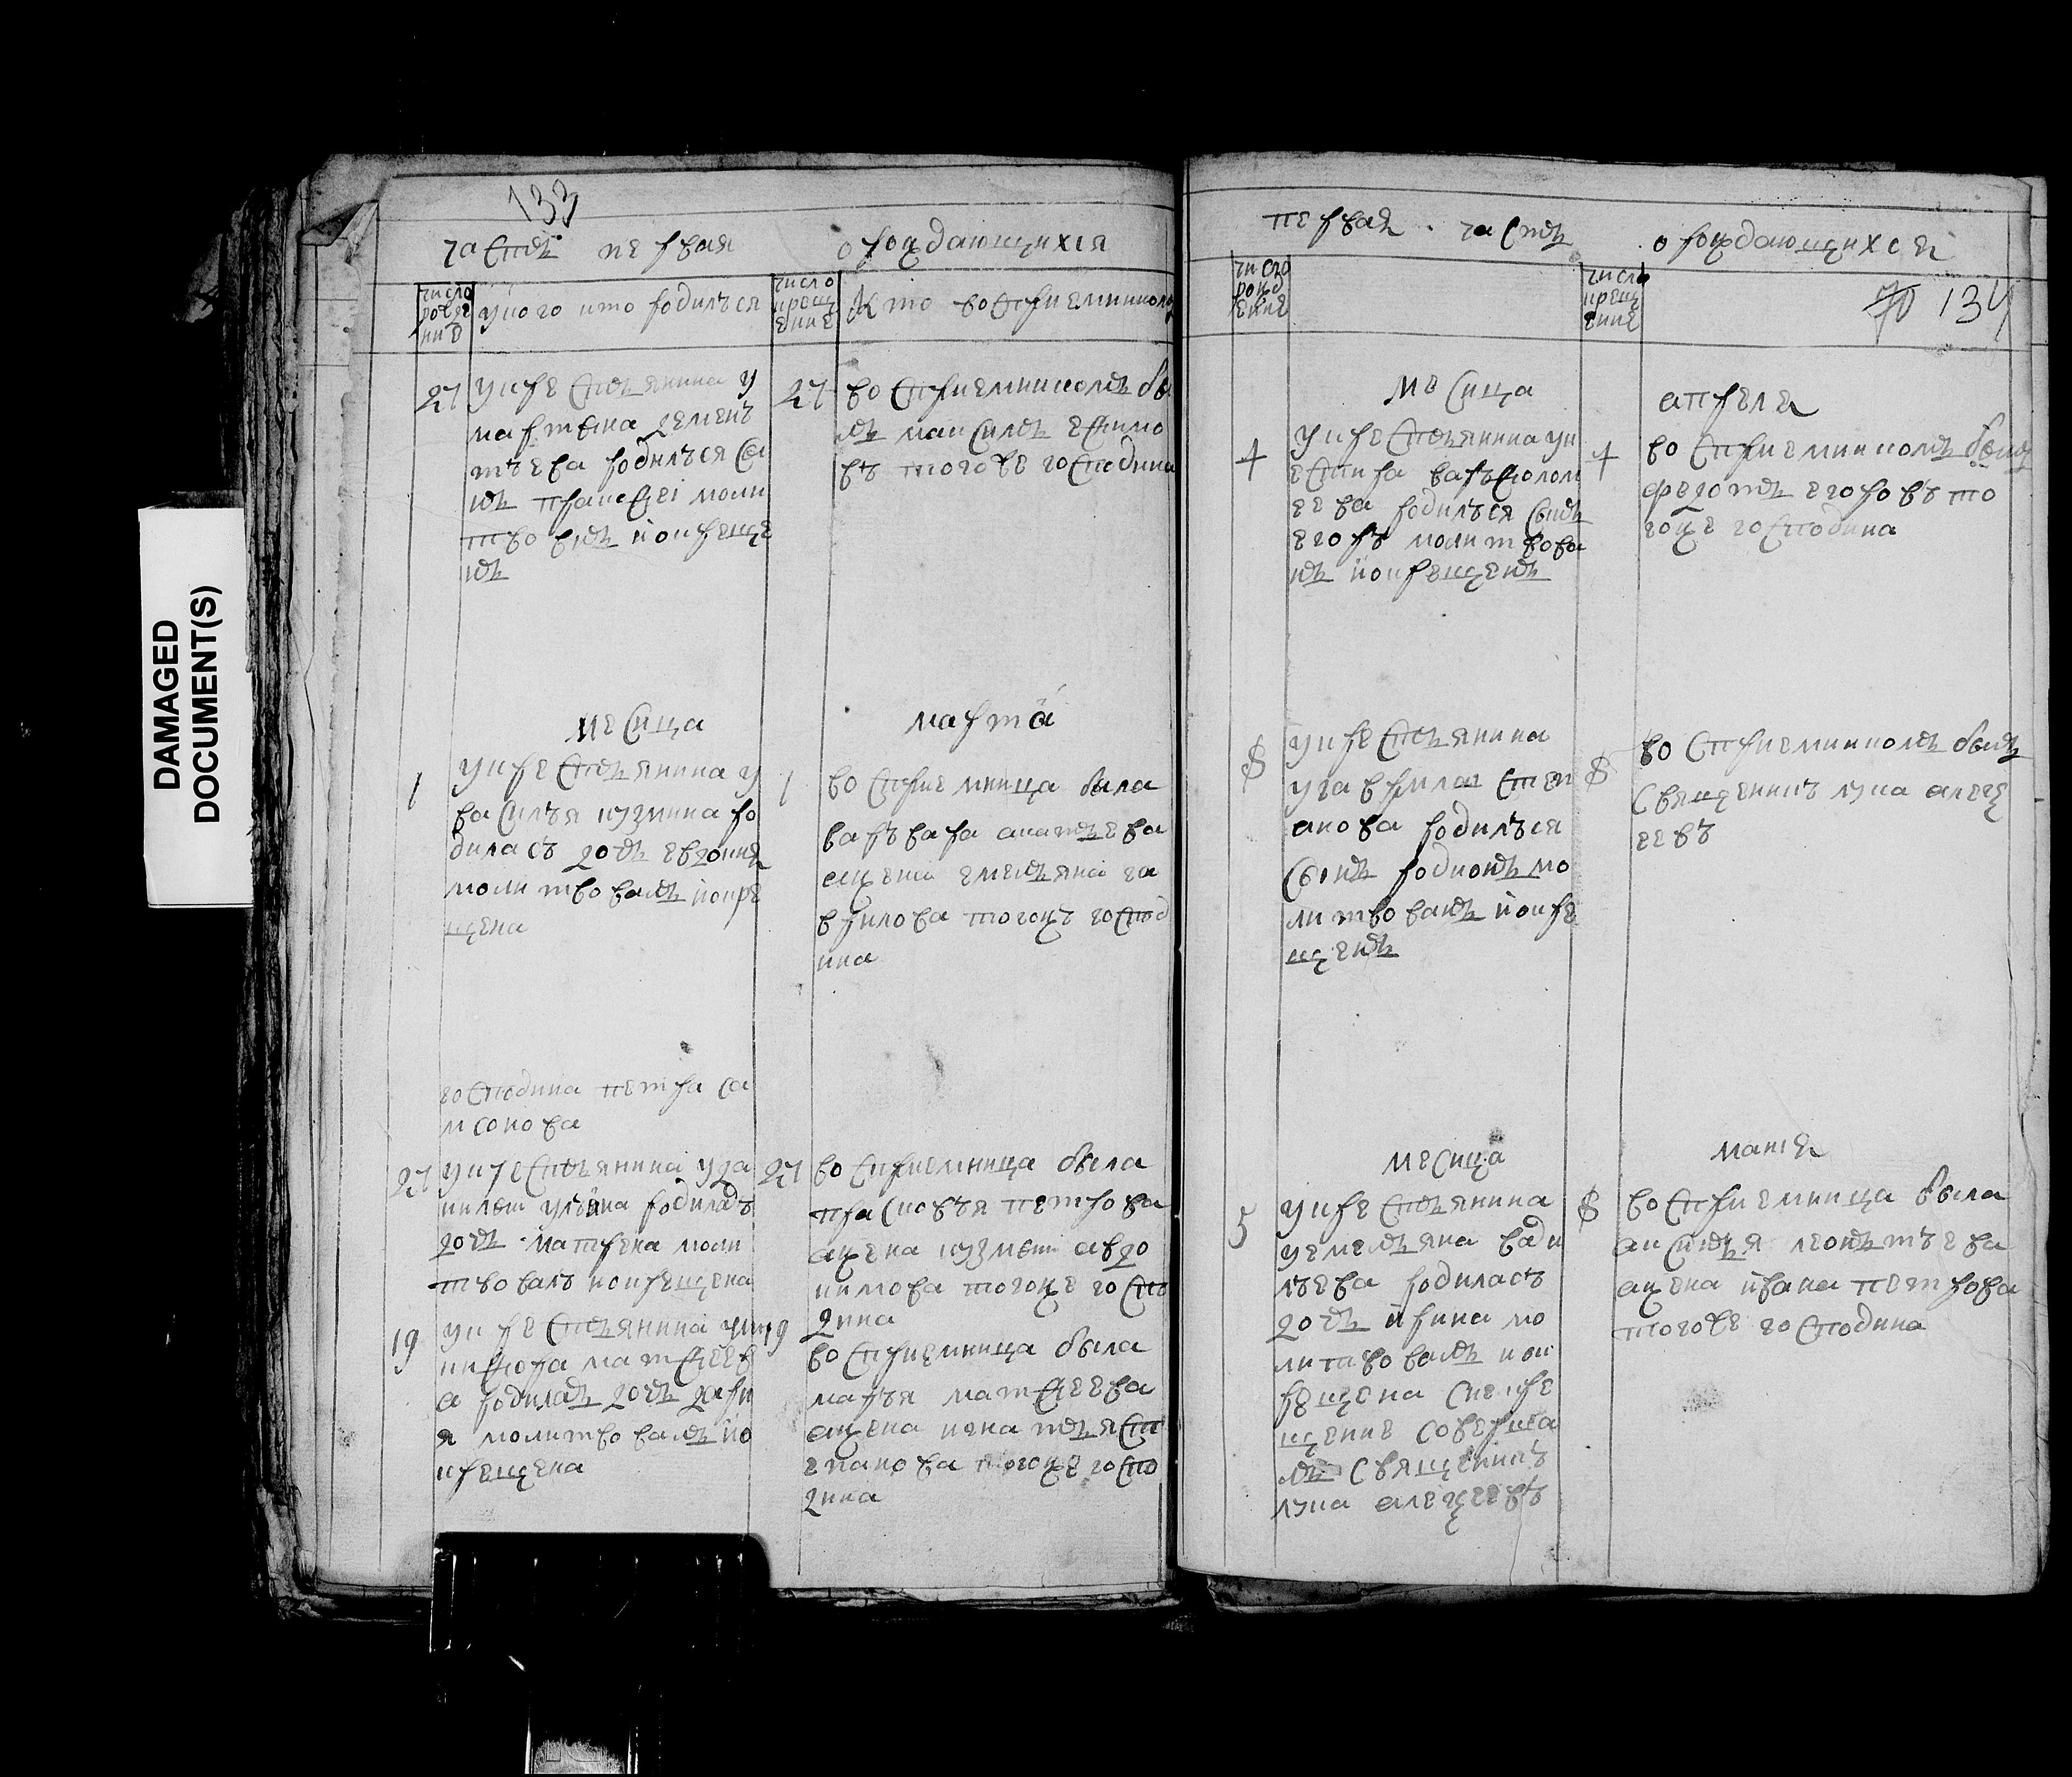 DAMAGED
DOCUMENT(S)
133
часть первая
о рождающихся
число
рожде
ние
у кого кто родился
число
крещ
ение
кто восприемником
27
у крестьянина у
мартина демень
тьева родилься сы
нь
моли
твовань и окреще
нь
27
восприемникомь бы
ль
вь тогоже господина
месица
марта
1
у крестьянина у
василья кузмина ро
дилась дочь евдокия
молитвовань и окре
щена
1
восприемница была
варъвара
жена емельяна га
врилова тогожъ господ
ина
господина петра са
мсонова
27
у крестьянина у да
родилась
дочь матрена моли
твовалъ и окрещена
27
восприемница была
прасковъя петрова
жена кузмы авдо
кимова тогоже госпо
дина
19
у крестьянина у
никифора матфеев
а родилась дочь дари
я молитвовань и о
крещена
19
восприемница была
марья матфеева
жена игнатья ст
епанова тогоже госпо
дина
первая часть
о рождающихся
число
рожд
ение
число
крещ
ение
70 134
месица
апреля
4
у крестьянина у н
естира варъсолом
еева родилься сынь
егоръ молитвова
нь и окрещень
4
восприемникомь быль
федоть егоровъ то
гоже господина
8
у крестьянина
у гаврилы степ
анова родилься
сынь родионь мо
литвовань и окре
щень
8
восприемникомь быль
священникъ лука алексе
евъ
месица
маия
5
у крестьянина
у емельяна сав
льева родилась
дочь ирина мо
литвовань и ок
рещена сие кре
щение соверша
ль священникъ
лука алексеевъ
8
восприемница была
аксинья леонтьева
жена ивана петрова
тогоже господина